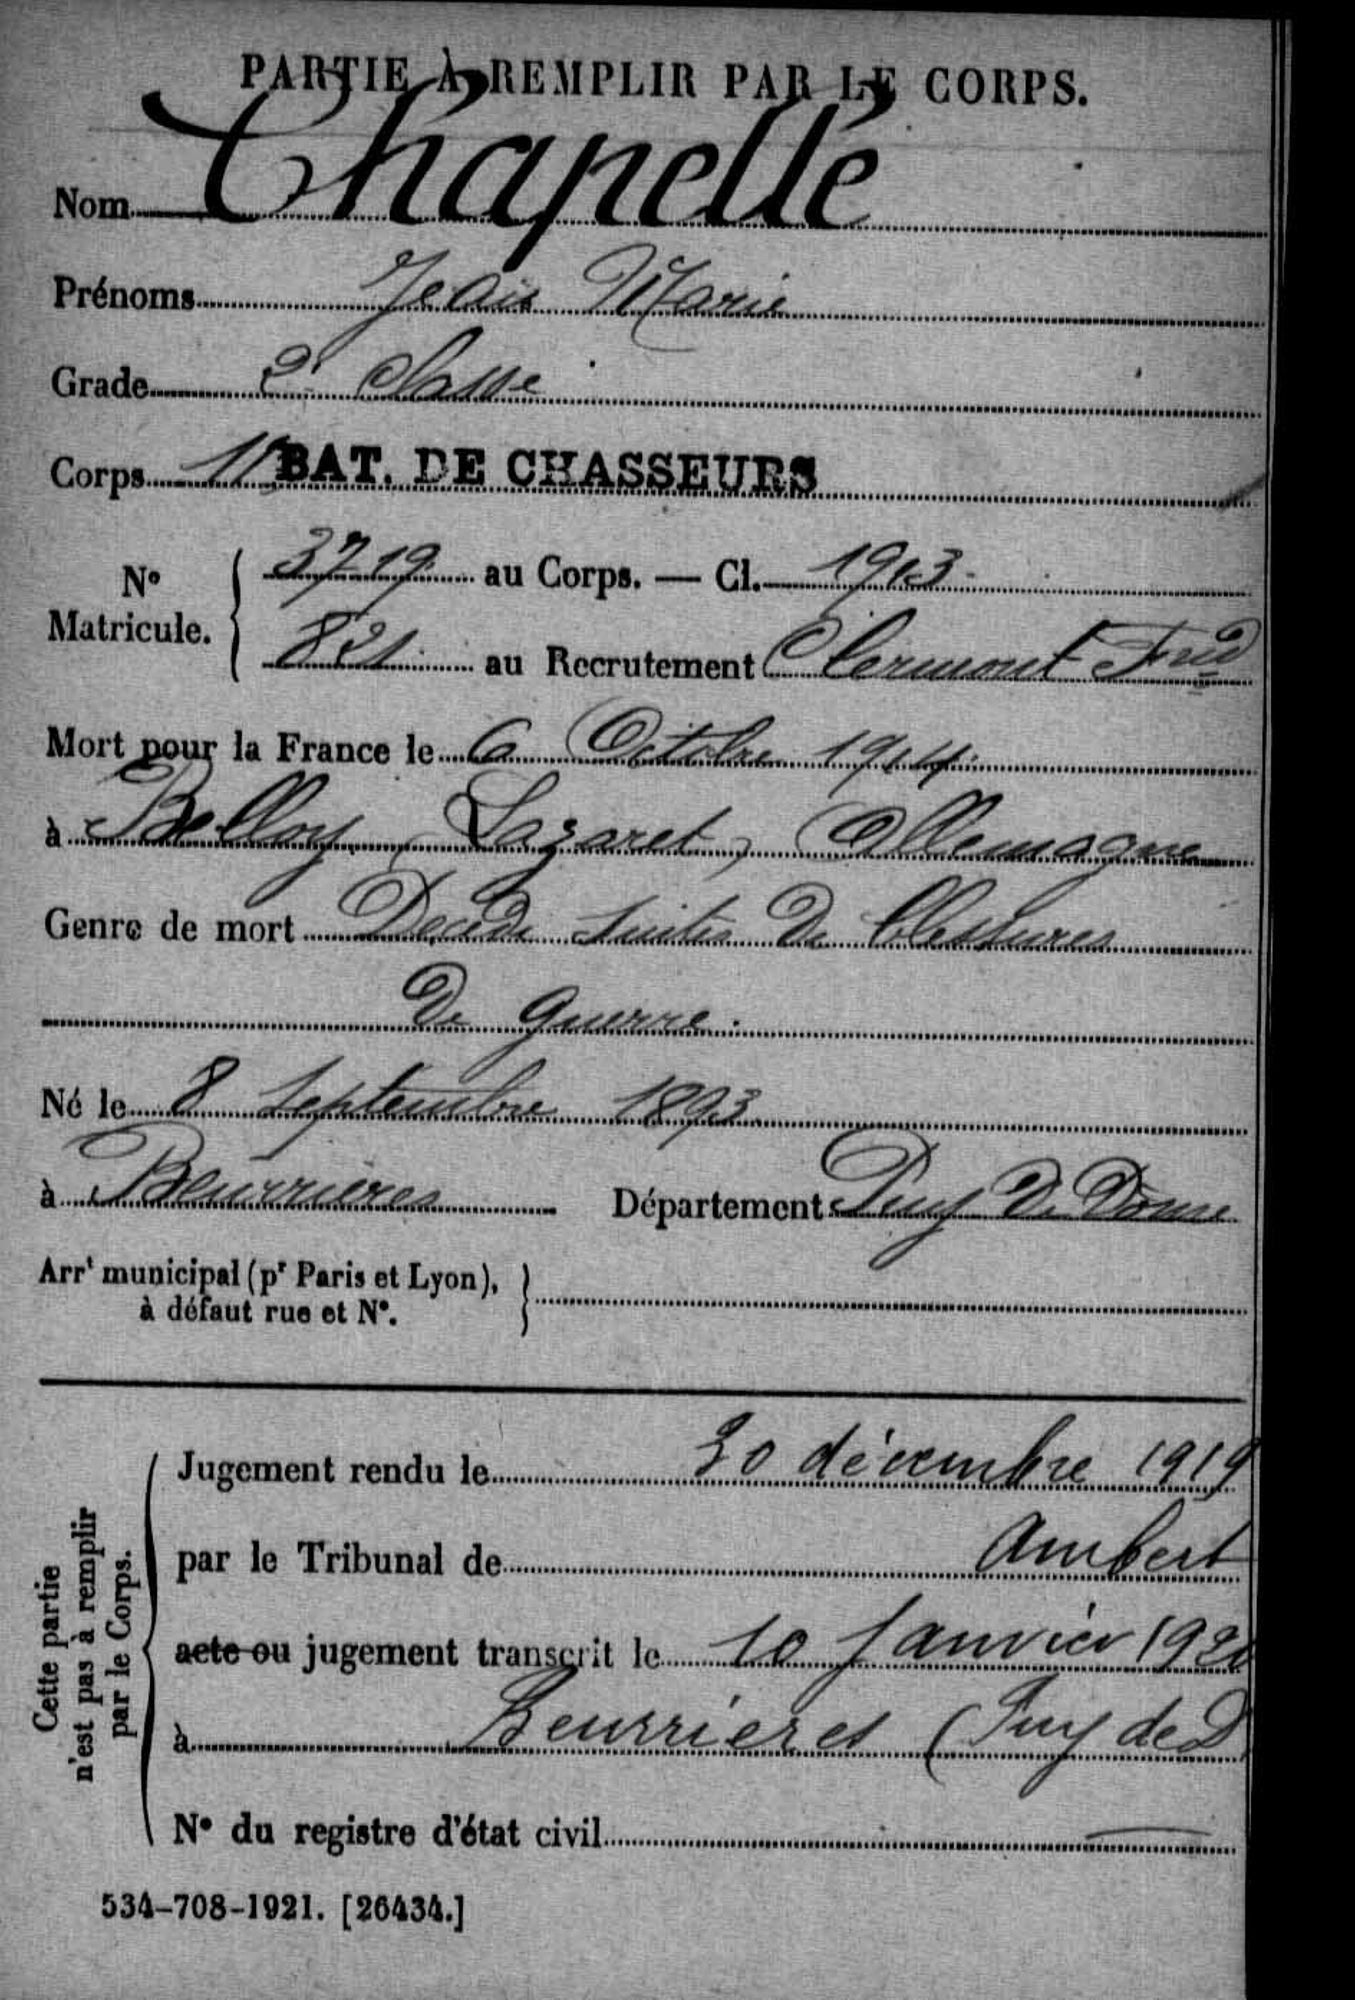 PARTIE À REMPLIR PAR LE CORPS.
Nom Chapelle
Prénoms Jean Marie
Grade 2e classe
Corps 11 BAT. DE CHASSEURS
N° Matricule. 3719 au Corps. — Cl. 1913
821 au Recrutement Clermont Frd
Mort pour la France le 6 Octobre 1914
à Belloy, Lazaret, Allemagne
Genre de mort Décédé suites de blessures
de guerre.
Né le 8 Septembre 1893
à Beurrières Département Puy de Dôme
Arrt municipal (pr Paris et Lyon),
à défaut rue et N°.
Cette partie n'est pas à remplir par le Corps.
Jugement rendu le 30 décembre 1919
par le Tribunal de Ambert
acte ou jugement transcrit le 10 Janvier 1920
à Beurrières (Puy de D
N° du registre d'état civil
534-708-1921. [26434.]